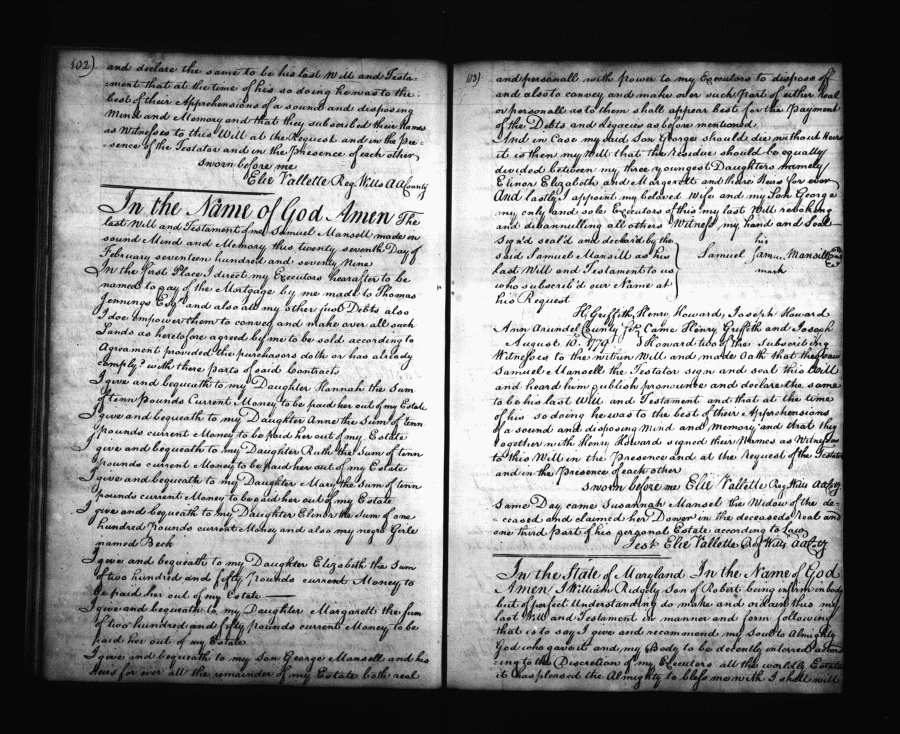 102)
and declare the same to be his last Will and Testa-
ment that at the time of his so doing he was to the
best of their Apprehensions of a sound and disposing
Mind and Memory and that they subscribed their Names
as Witnesses to this Will at the Request and in the Pre=
=sence of the Testator and in the Presence of each other
sworn before me
Elie Vallette Reg. Wills AACounty
In the Name of God Amen The
last Will and Testament of me Samuel Mansell made in
sound Mind and Memory this twenty seventh Day of
February seventeen hundred and seventy Nine
In the first Place I direct my Executors hereafter to be
named to pay of the Mortgage by me made to Thomas
Jennings Esqr. and also all my other just Debts also
I doe empower them to convey and make over all such
Lands as heretofore agreed by me to be sold according to
Agreament provided the purchasors doth or has already
comply'd with there parts of said Contracts
I give and bequeath to my Daughter Hannah the Sum
of tenn Pounds Current Money to be paid her out of my Estate
I give and bequeath to my Daughter Anne the Sum of tenn
pounds current Money to be paid her out of my Estate
I give and bequeath to my Daughter Ruth the Sum of tenn
pounds current Money to be paid her out of my Estate
I give and bequeath to my Daughter Mary the Sum of tenn
pounds current Money to be paid her out of my Estate
I give and bequeath to my Daughter Elinor the Sum of one
hundred Pounds current Money and also my negro Girle
named Beck
I give and bequeath to my Daughter Elizabeth the Sum
of two hundred and fifty Pounds current Money to
be paid her out of my Estate
I give and bequeath to my Daughter Margarett the Sum
of two hundred and fifty pounds current Money to be
paid her out of my Estate
I give and bequeath to my Son George Mansell and his
Heirs for ever all the remainder of my Estate both real
103)
and personall with power to my Executors to dispose off
and also to convey and make over such Part of either real
or personall as to them shall appear best for the Payment
of the Debts and Legacies as before mentioned
And in Case my said Son George should die without Heirs
it is then my Will that the Residue should be equally
divided between my three youngest Daughters namely
Elinor Elizabeth and Margerett and their Heirs for ever
And lastly I appoint my beloved Wife and my Son George
my only and sole Executors of this my last Will revoking
and disannulling all others Witness my hand and Seal
Sign'd seal'd and declar'd by the
said Samuel Mansill as his
last Will and Testament to us
who subscrib'd our Name at
his Request
his
Samuel Mansill
mark
H. Griffith, Henry Howard, Joseph Howard
Ann Arundel County Came Henry Griffith and Joseph
August 10. 1779 Howard two of the subscribing
Witnesses to the within Will and made Oath that they saw
Samuel Mansell the Testator sign and seal this Will
and heard him publish pronounce and declare the same
to be his last Will and Testament and that at the time
of his so doing he was to the best of their Apprehensions
of a sound and disposing Mind and Memory and that they
together with Henry Howard signed their Names as Witnesses
to this Will in the Presence and at the Request of the Testator
and in the Presence of each other
sworn before me Elie Vallette Reg Wills AACty
Same Day came Susannah Mansel the Widow of the de-
=ceased and claimed her Dower in the deceaseds real and
one third part of his personal Estate according to Law
Test Elie Vallette Reg Wills AACty
In the State of Maryland In the Name of God
Amen I William Ridgely Son of Robert being infirm in body
but of perfect Understanding do make and ordain this my
last Will and Testament in manner and form following
that is to say I give and recommend my Soul to Almighty
God who gave it and my Body to be decently interred accord
ing to the Discretion of my Executors all the worldly Estate
it has pleased the Almighty to bless me with I shall will